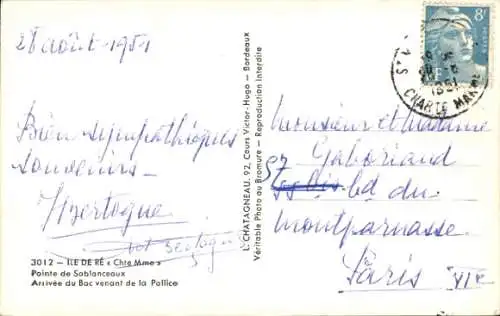 28 août 1951
Bien sympathiques
souvenirs
3012 - ILE DE RÉ « Chte Mme »
Pointe de Sablanceaux
Arrivée du Bac venant de la Pallice
L. CHATAGNEAU, 92, Cours Victor-Hugo - Bordeaux
Véritable Photo au Bromure - Reproduction interdite
8F
POSTES
1951
CHARTE MARME
Monsieur et Madame
Gaboriaud
57
Bd du
Montparnasse
Paris VIe